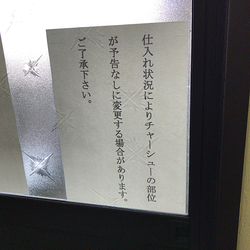 仕入れ状況によりチャーシューの部位
が予告なしに変更する場合があります。
ご了承下さい。